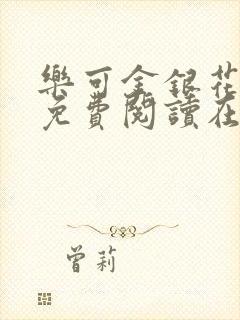 樂可金銀花
免費閱讀在
曾莉